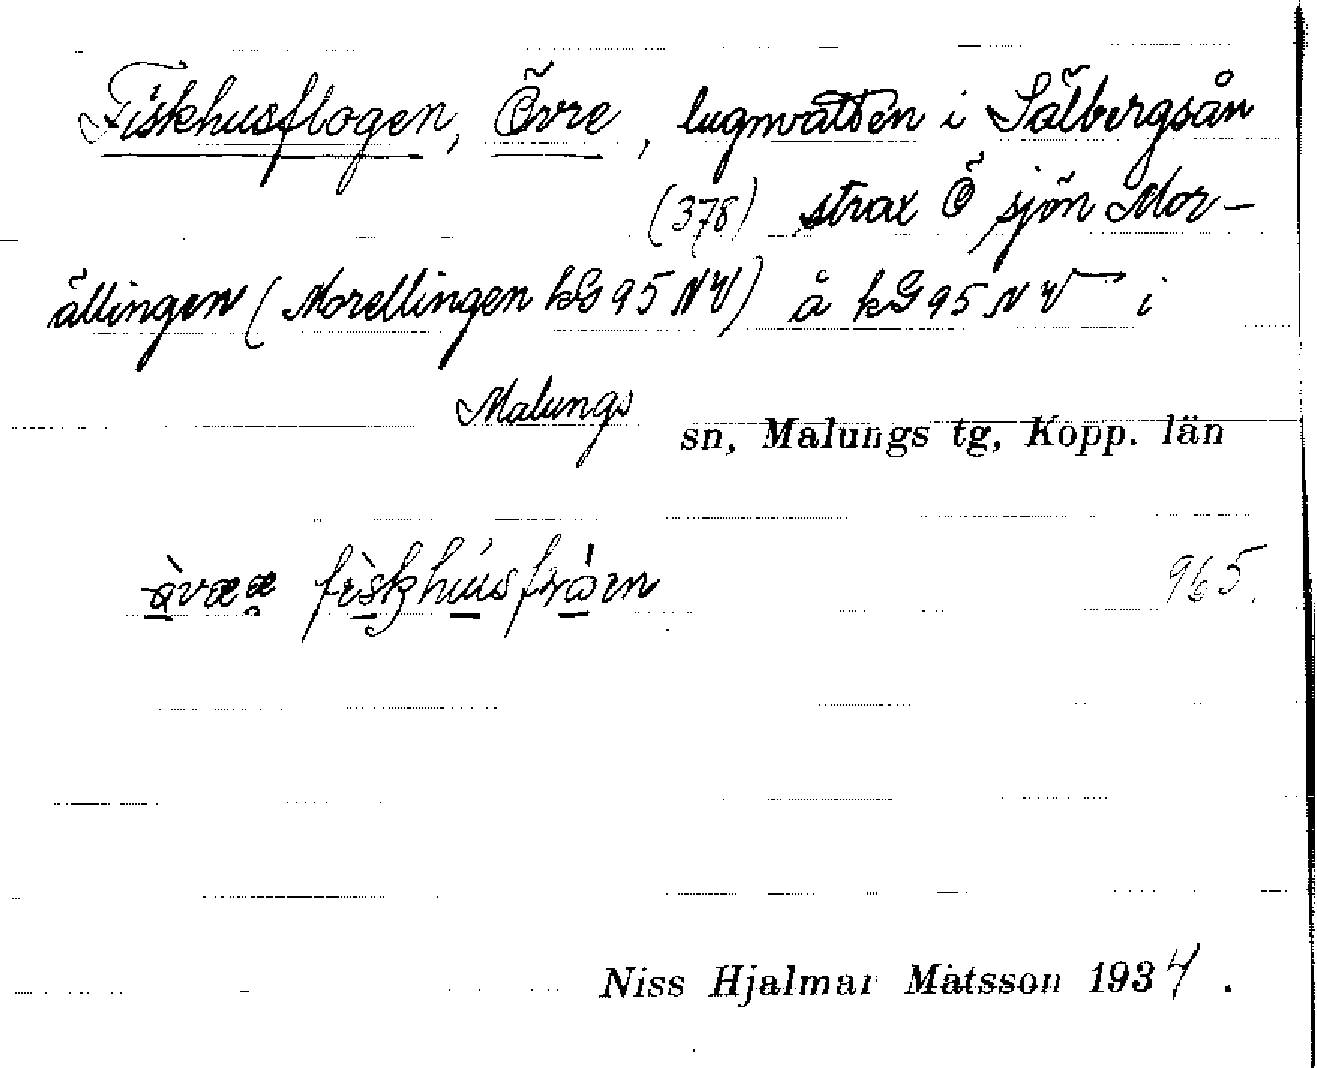 Fiskhusflogen, Övre, lugnvatten i Sälbergsån
(378) strax Ö sjön Mor-
ällingen (Morellingen kG 95 NV) å kG 95 NV i
Malungs sn, Malungs tg, Kopp. län
965.
Niss Hjalmar Matsson 1934.